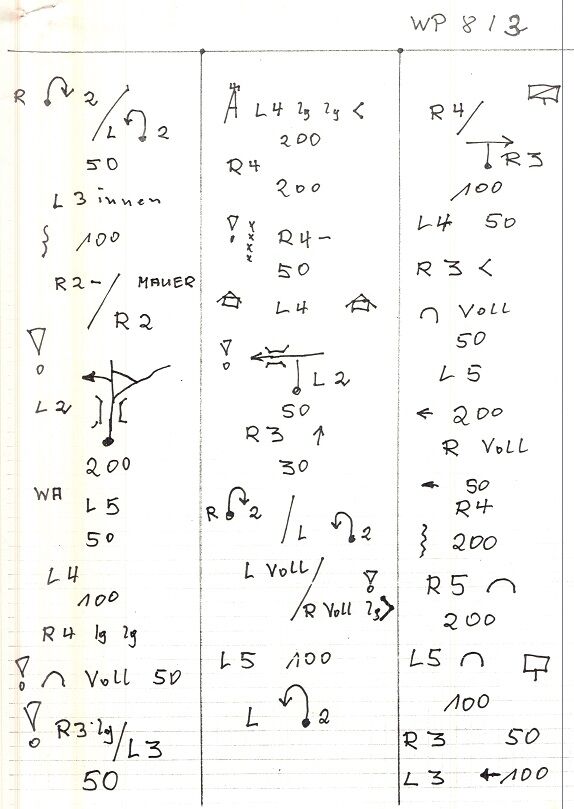 WP 8/3
R 2
/ L 2
50
L 3 innen
100
R 2 - / MAUER
R 2
!
L 2
200
WA L 5
50
L 4
100
R 4 lg lg
! Voll 50
! R 3 lg / L 3
50
L 4 lg lg <
200
R 4
200
! R 4 -
50
L 4
! L 2
50
R 3 ↑
30
R 2
/ L 2
L Voll /
! R Voll lg >
L 5 100
L 2
R 4 /
R 3
100
L 4 50
R 3 <
Voll
50
L 5
← 200
R Voll
← 50
R 4
200
R 5
200
L 5
100
R 3 50
L 3 ← 100